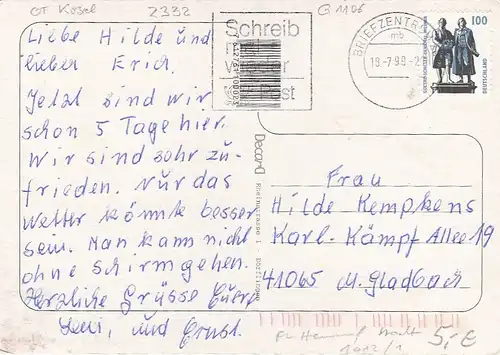 OT Kosel 2332 G1106
Schreib
mal
wieder
Post
BRIEFZENTRUM
mb
19.-7.99-2
100
DEUTSCHLAND
Liebe Hilde und
lieber Erich.
Jetzt sind wir
schon 5 Tage hier.
Wir sind sehr zu-
frieden. Nur das
Wetter könnte besser
sein. Man kann nicht
ohne schirm gehen.
Herzliche Grüsse Euere
Leni, und Ernst.
Decord
Frau
Hilde Kempkens
Karl-Kämpf Allee 19
41065 M.Gladbach
5,-€